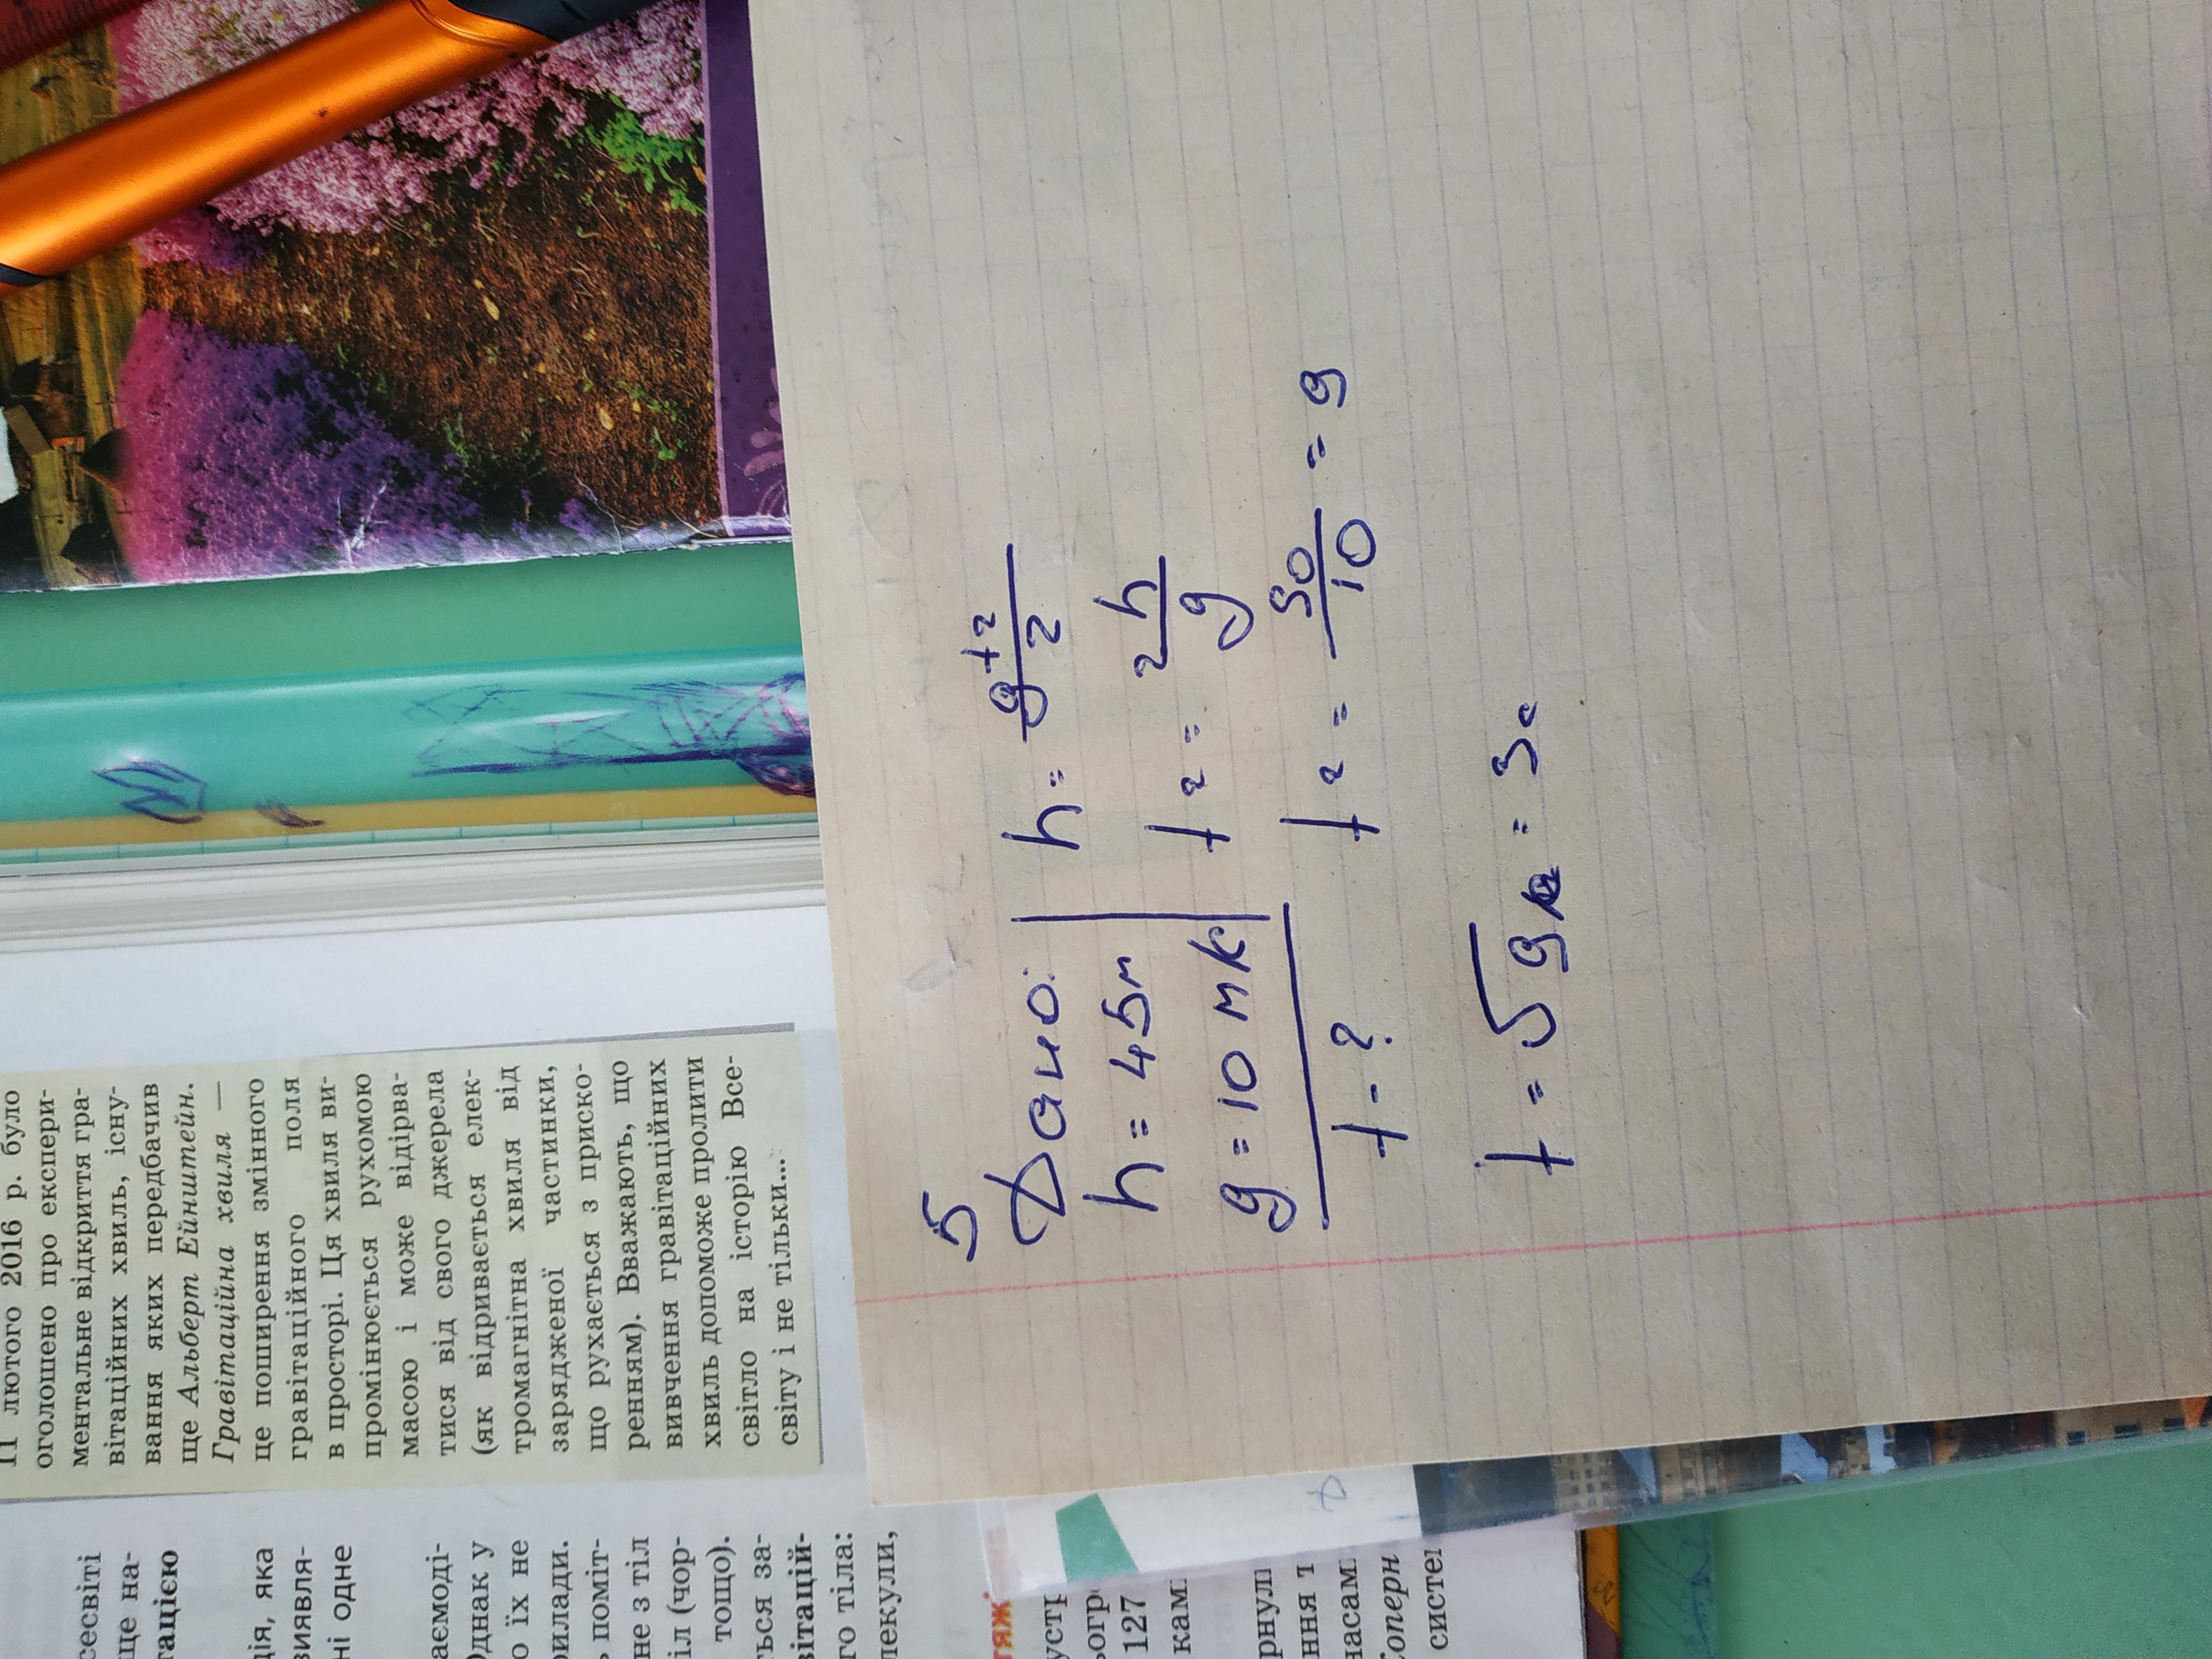 11 лютого 2016 р. було
оголошено про експери-
ментальне відкриття гра-
вітаційних хвиль, існу-
вання яких передбачив
ще Альберт Ейнштейн.
Гравітаційна хвиля —
це поширення змінного
гравітаційного поля
в просторі. Ця хвиля ви-
промінюється рухомою
масою і може відірва-
тися від свого джерела
(як відривається елек-
тромагнітна хвиля від
зарядженої частинки,
що рухається з приско-
ренням). Вважають, що
вивчення гравітаційних
хвиль допоможе пролити
світло на історію Все-
світу і не тільки...
сесвіті
ще на-
тацією
ція, яка
виявля-
ні одне
аємоді-
Однак у
о їх не
рилади.
ь поміт-
не з тіл
іл (чор-
тощо).
ться за-
вітацій-
го тіла:
лекули,
тяж
127
ками
рнули
ння т
насам
Коперн
систе
5
Дано:
h = 45м
g = 10 мк
t - ?
h = gt²/2
t² = 2h/g
t² = 90/10 = 9
t = √9 = 3с